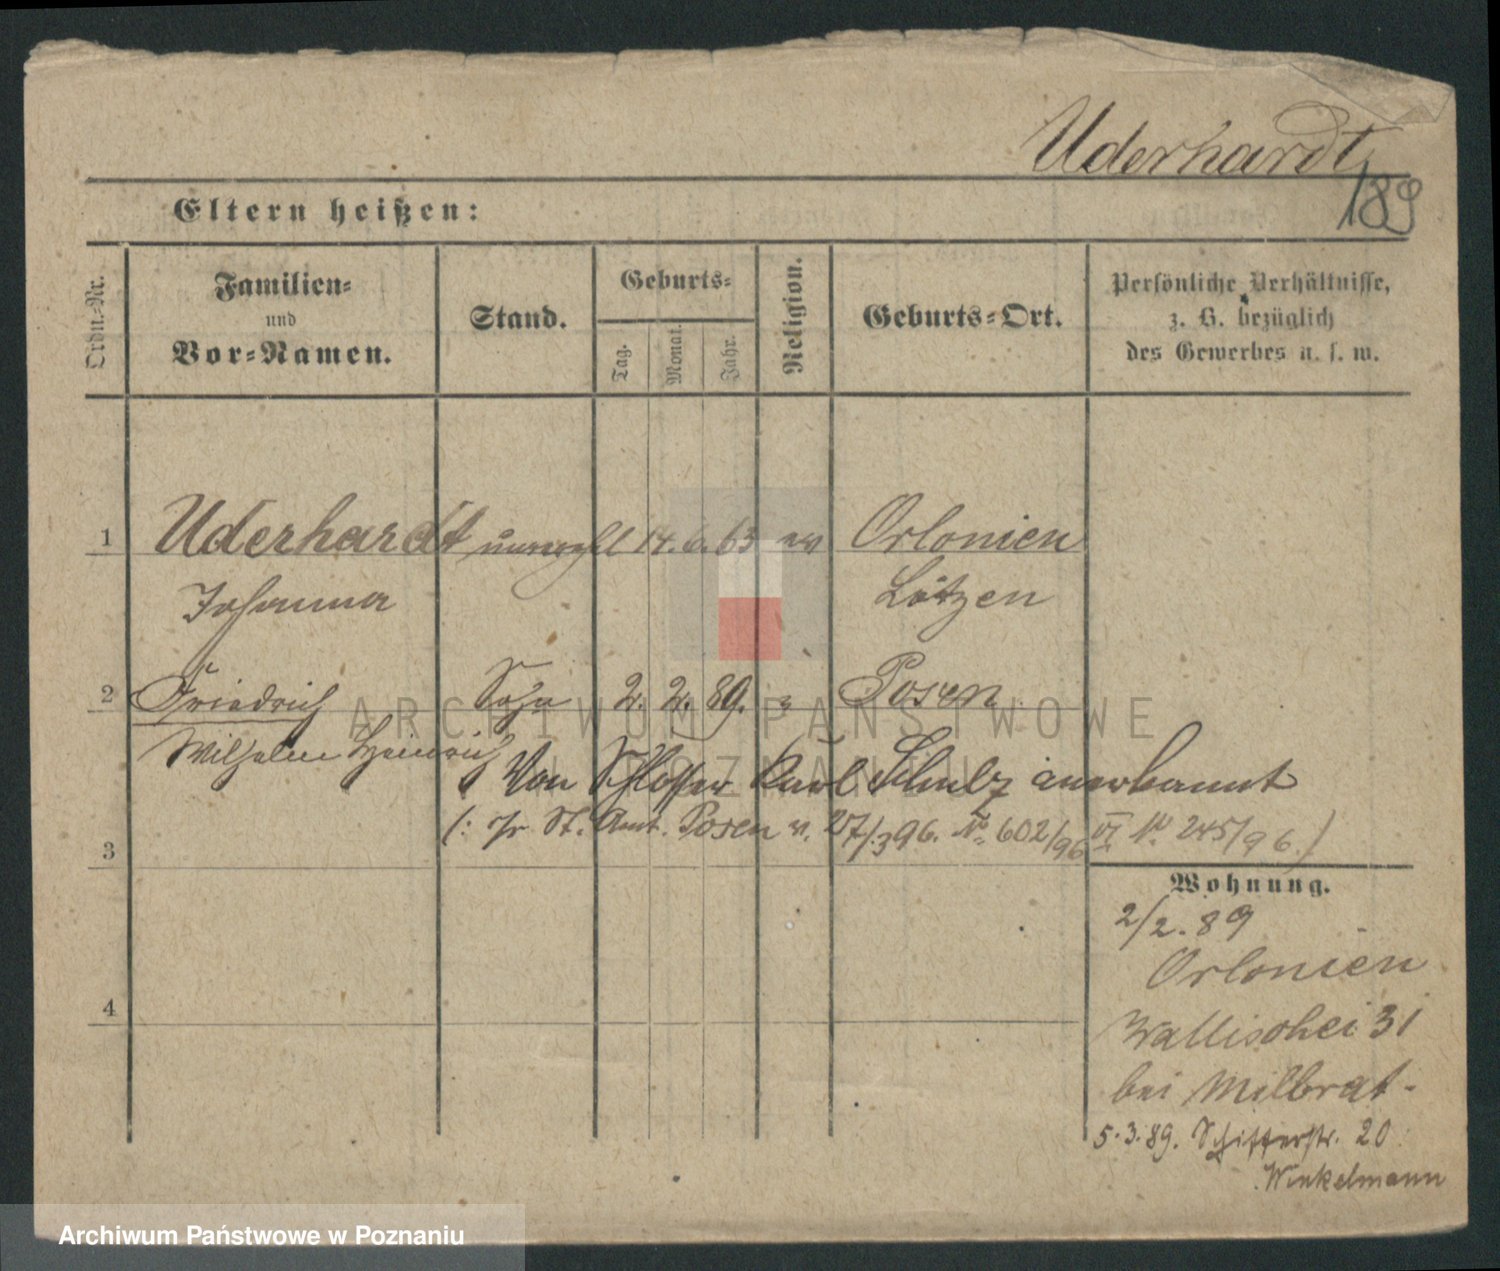 Uderhardt
189
Eltern heißen:
Ordn.-Nr.
Familien-
und
Vor-Namen.
Stand.
Geburts-
Tag.
Monat.
Jahr.
Religion.
Geburts-Ort.
Persönliche Verhältnisse,
z. B. bezüglich
des Gewerbes u. s. w.
1 Uderhardt unverehl 14. 6. 63 ev Orlonien
Johanna Lötzen
2 Friedrich Sohn 2. 2. 89. " Posen
Wilhelm Heinrich
Von Schlosser Karl Schulz anerkannt
(: Fr. St. Amt. Posen v. 27/3 96. No 602/96 VI No 245/96.)
3
Wohnung.
2/2. 89
Orlonien
4
Wallischei 31
bei Milbrat.
5.3.89. Schifferstr. 20
Winkelmann
ARCHIWUM PAŃSTWOWE
W POZNANIU
Archiwum Państwowe w Poznaniu